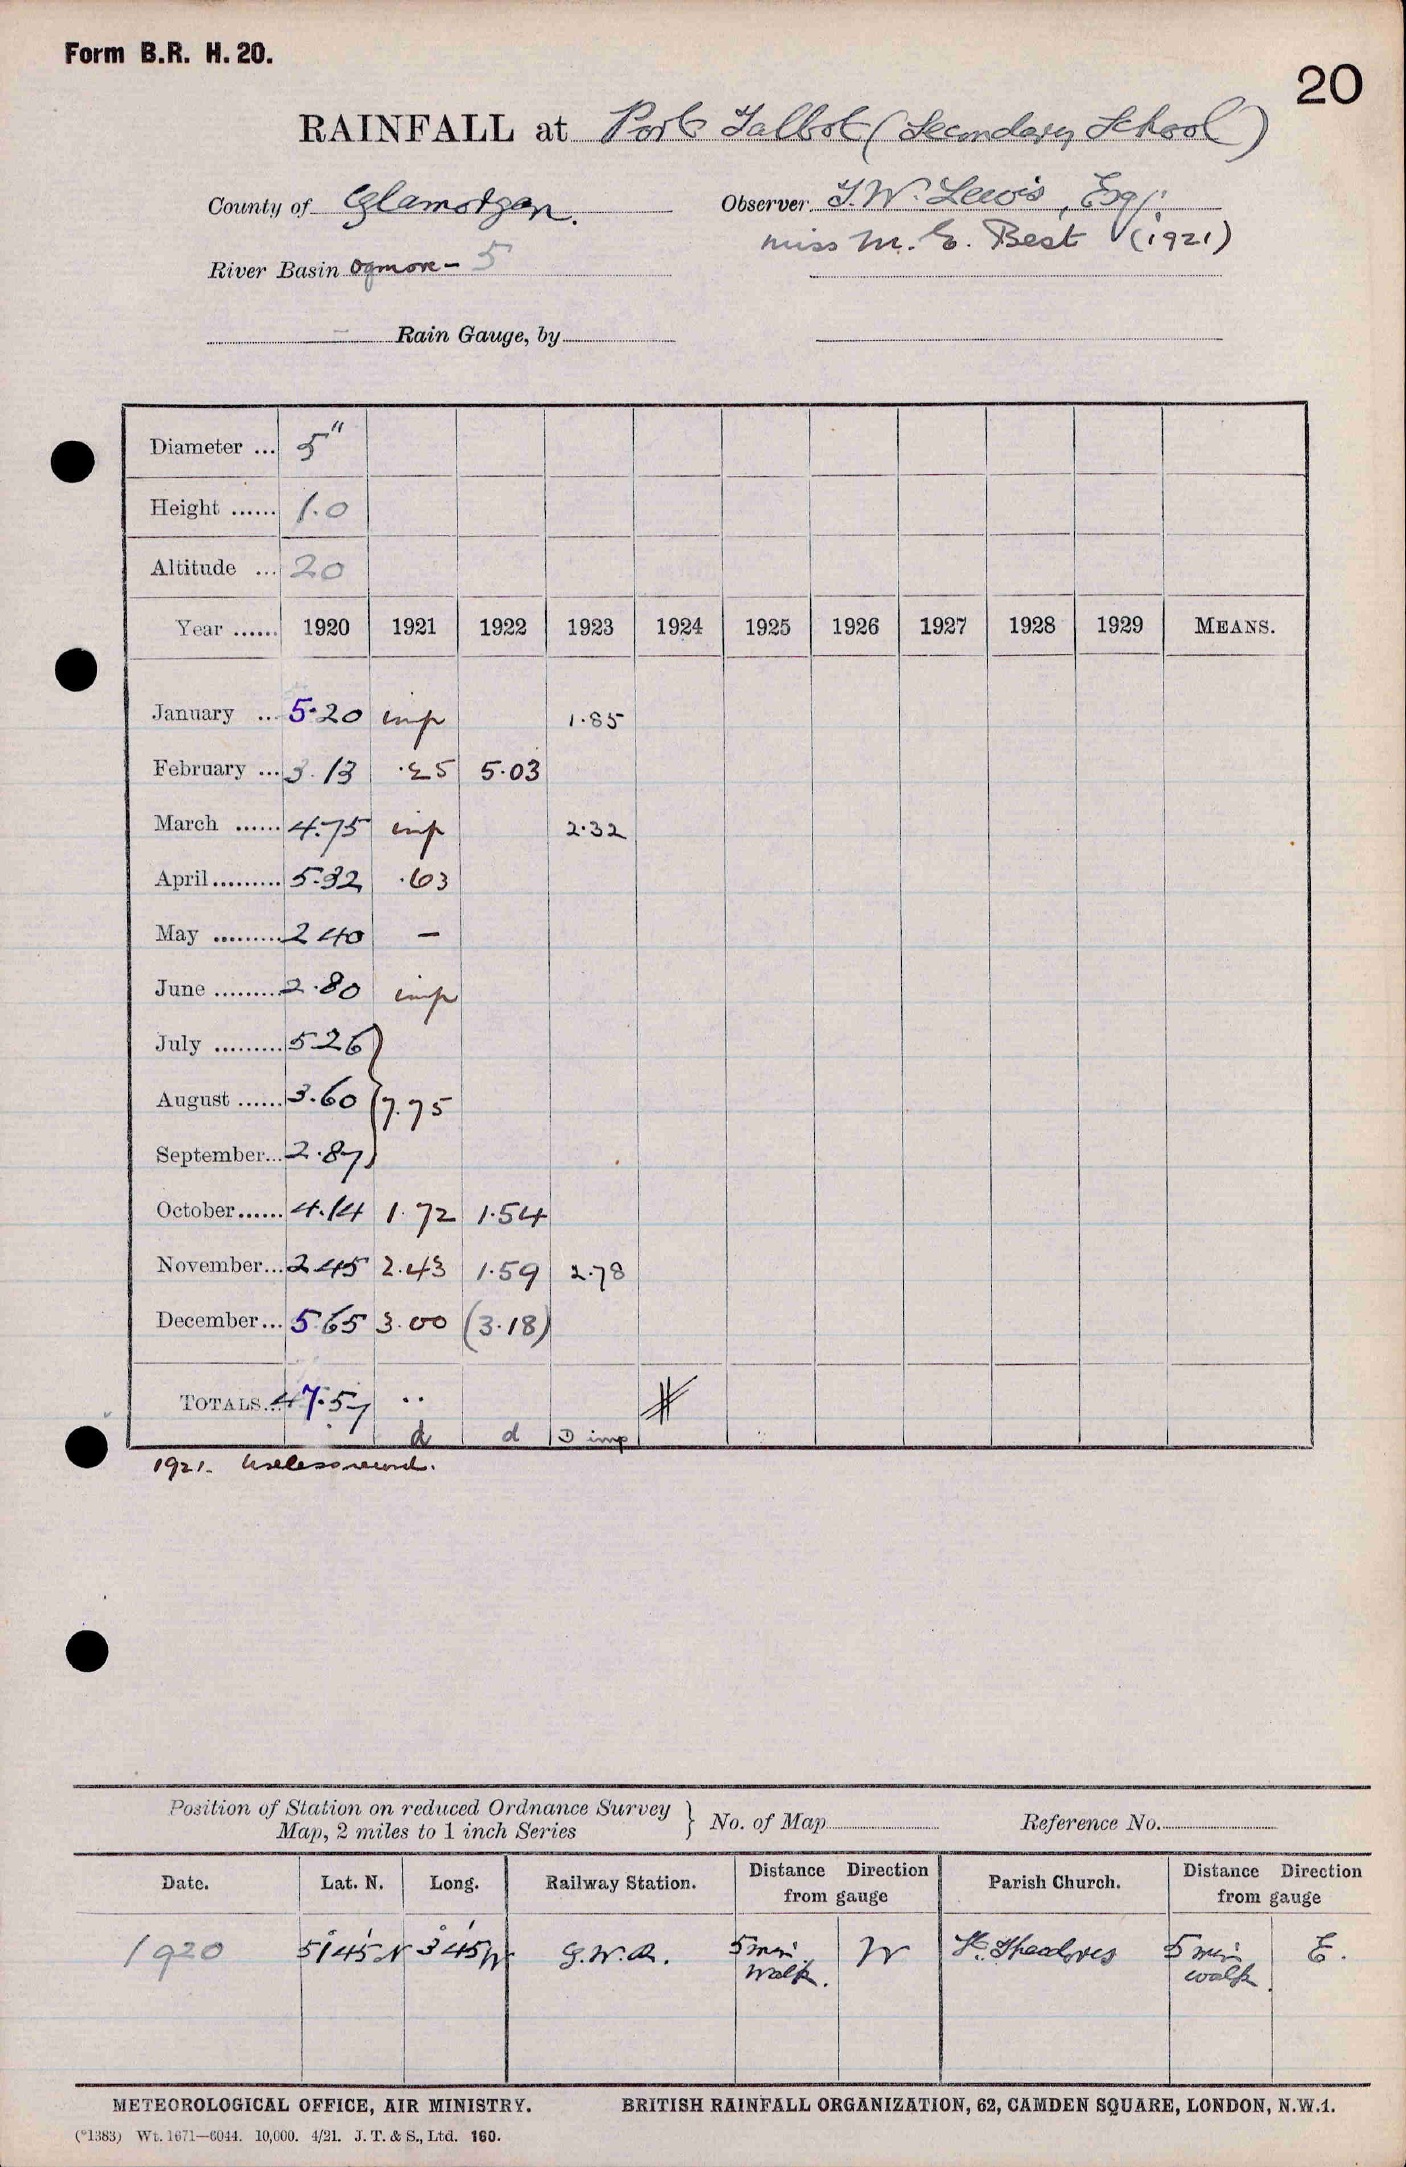 Form B.R. H. 20.
20
RAINFALL at Port Talbot (Secondary School)
County of Glamorgan. Observer T. W. Lewis, Esq.
Miss M. E. Best (1921)
River Basin Ogmore - 5
Rain Gauge, by
Diameter ... 5"
Height ...... 1.0
Altitude ... 20
Year ...... 1920 1921 1922 1923 1924 1925 1926 1927 1928 1929 MEANS.
January ... 5.20 imp 1.85
February ... 3.13 .25 5.03
March ...... 4.75 imp 2.32
April ......... 5.32 .63
May ......... 2 40 –
June ......... 2.80 imp
July ......... 5.26
August ...... 3.60 } 7.75
September... 2.87
October ...... 4.14 1.72 1.54
November... 2.45 2.43 1.59 2.78
December... 5.65 3.00 (3.18)
TOTALS... 47.57 ..
d d D imp
1921. Useless record.
Position of Station on reduced Ordnance Survey
Map, 2 miles to 1 inch Series } No. of Map Reference No.
Date. Lat. N. Long. Railway Station. Distance Direction from gauge Parish Church. Distance Direction from gauge
1920 51°45'N 3°45'W G.W.R. 5 min walk. W St. Theodores 5 min walk. E.
METEOROLOGICAL OFFICE, AIR MINISTRY. BRITISH RAINFALL ORGANIZATION, 62, CAMDEN SQUARE, LONDON, N.W.1.
(*1383) Wt. 1671—6044. 10,000. 4/21. J. T. & S., Ltd. 160.